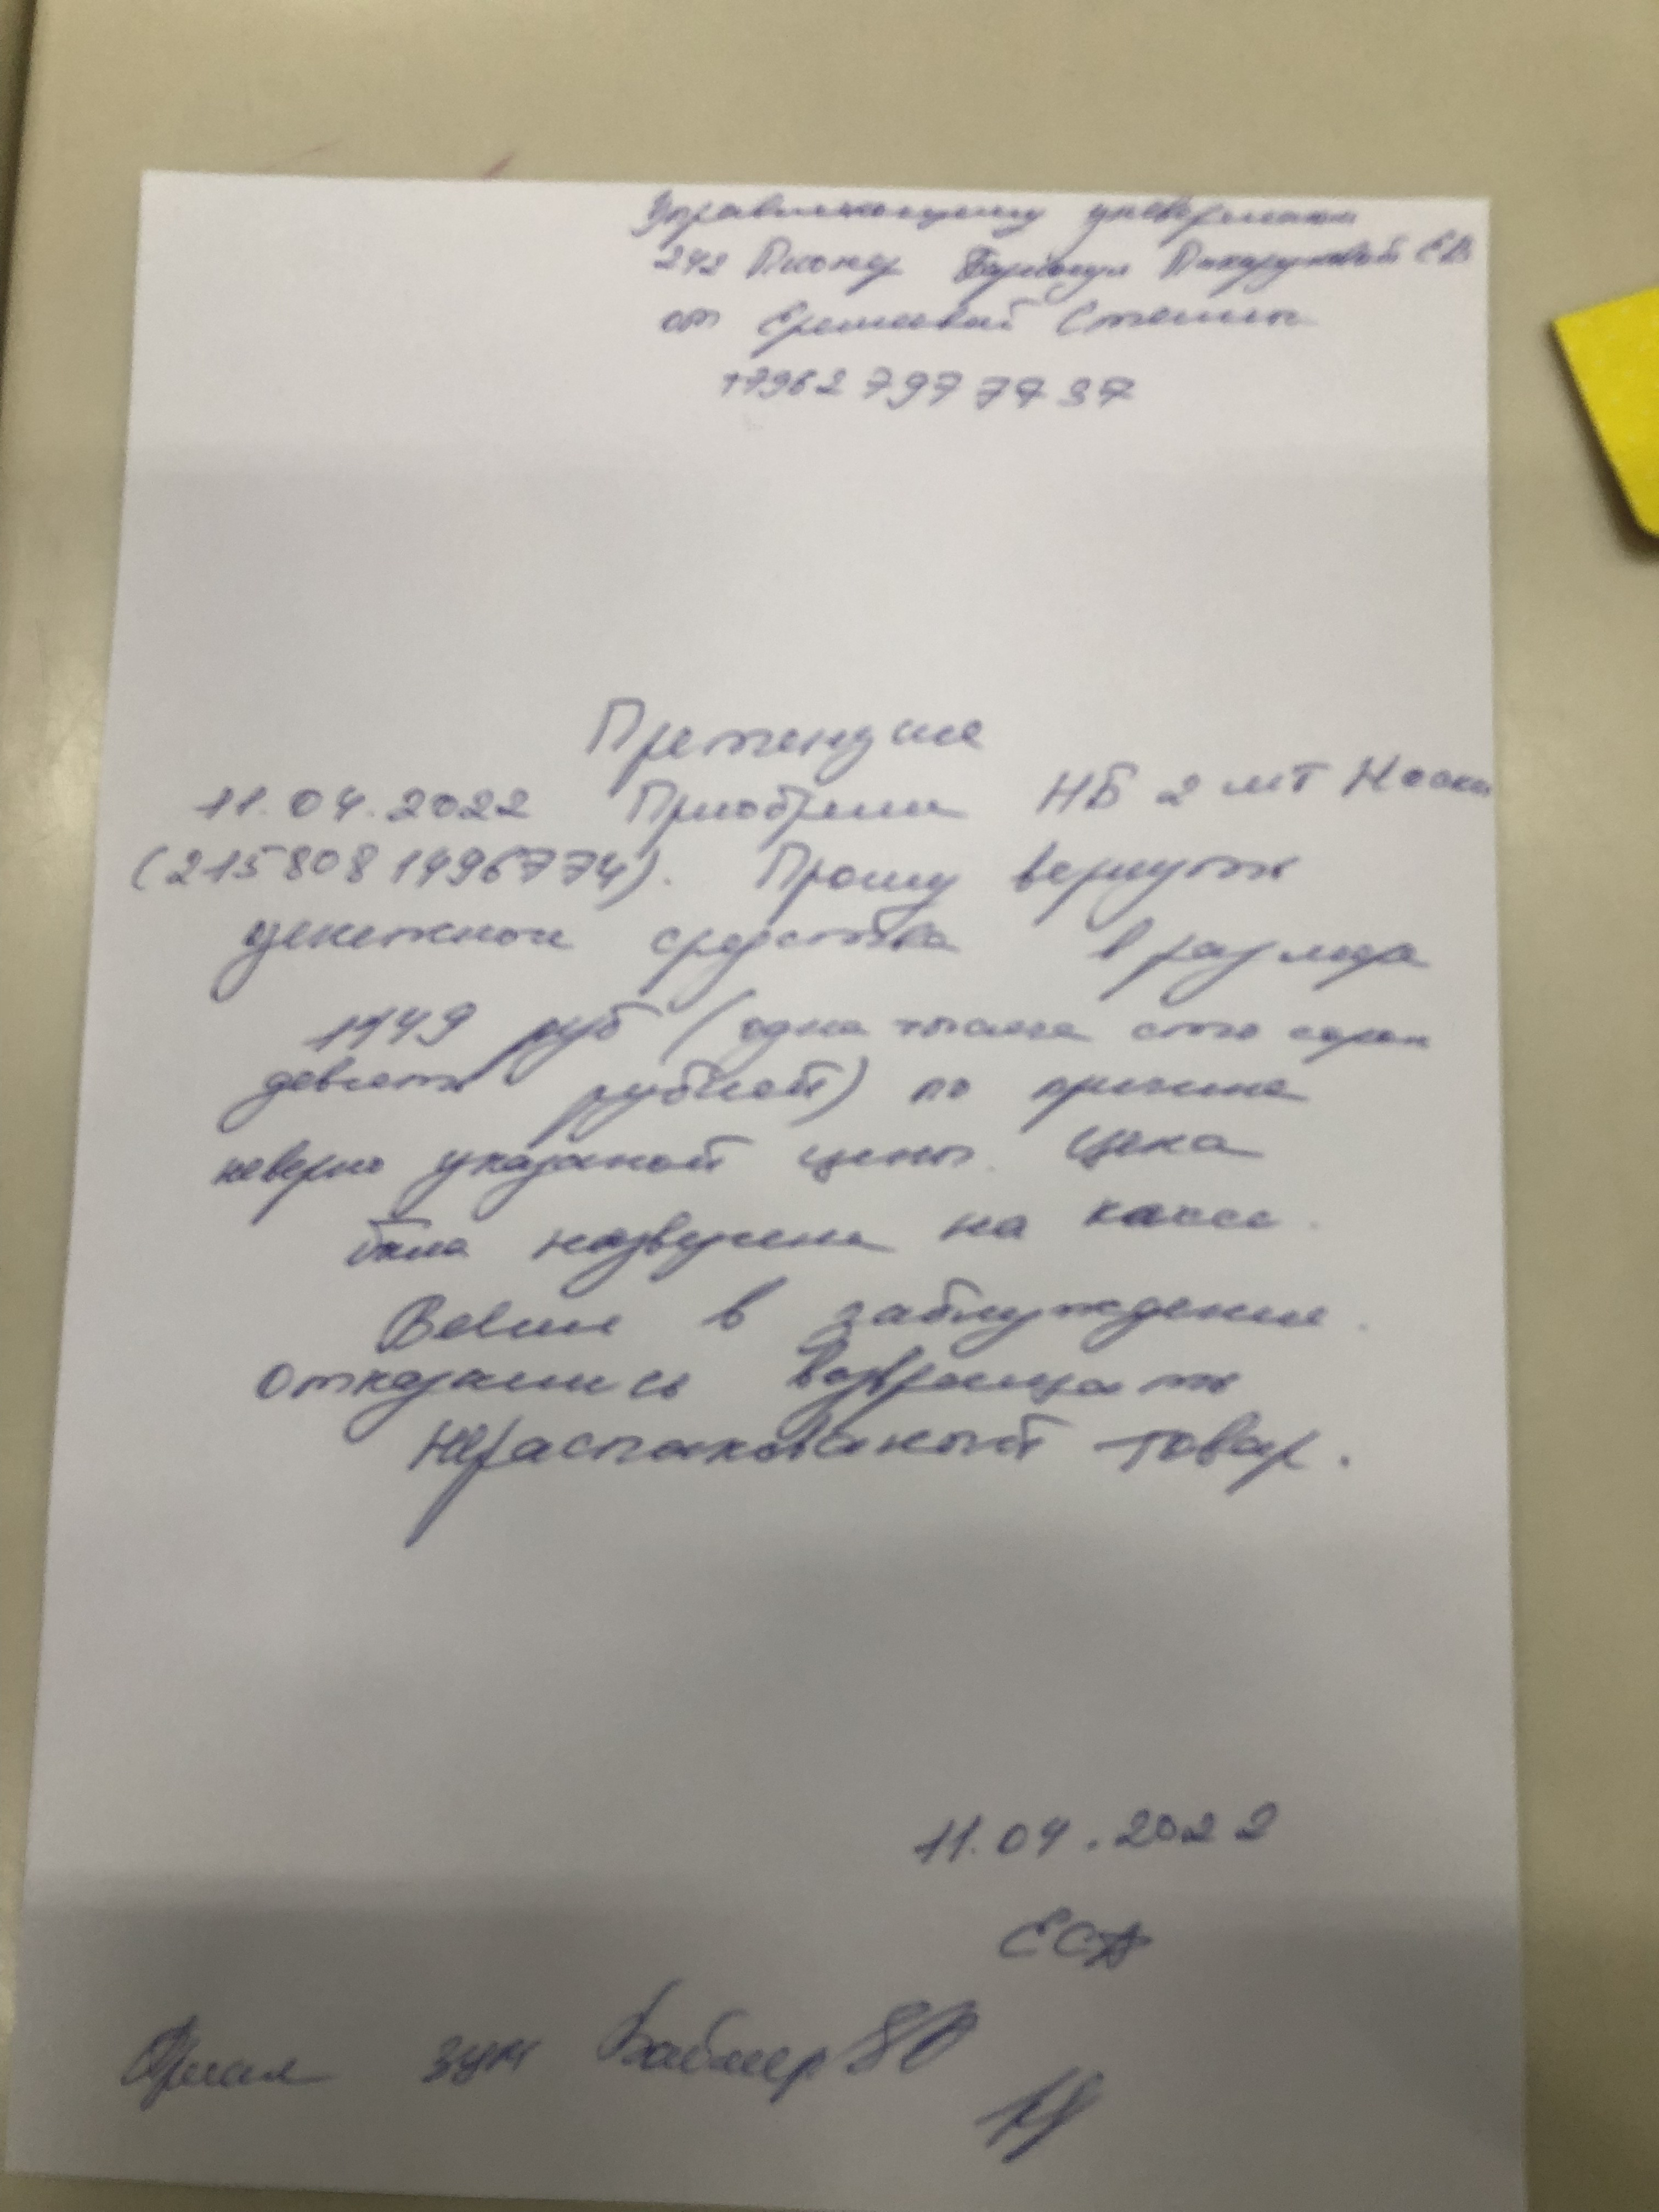 Управляющему универмага
242 Пионер Барнаул Пикарулевой Е.В.
от Ермаковой
+7962 797 77 37
Претензие
11.04.2022 Приобрели НБ 2 шт Носки
(2158081496774). Прошу вернуть
денежнои средства в размере
1149 руб (одна тысяча сто сорок
девять рублей) по причине
неверно указаной цены. Цена
была на кассе.
Ввели в заблуждение.
Отказались возвращать
нераспакованый товар.
11.04.2022
ЕСА
Принял зум